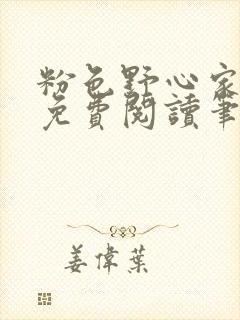 粉色野心家
免費閱讀筆
姜偉葉